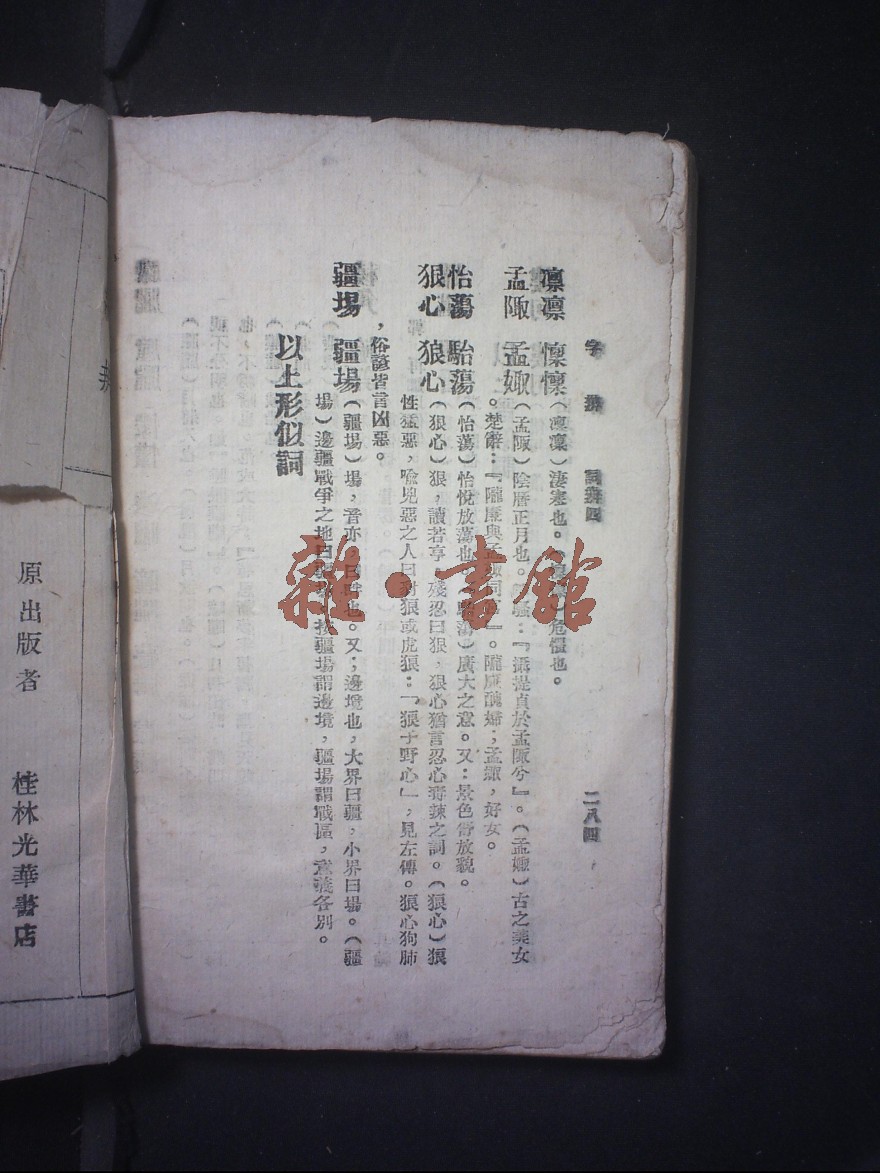 字辨 詞辨四 二八四
凛凛 懍懍（凛凛）淒寒也。（懍懍）危懼也。
孟陬 孟娵（孟陬）陰曆正月也。離騷：『攝提貞於孟陬兮』。（孟娵）古之美女
。楚辭：『隴廉與孟娵同宮』。隴廉醜婦；孟娵，好女。
怡蕩 駘蕩（怡蕩）怡悅放蕩也。（駘蕩）廣大之意。又：景色舒放貌。
狠心 狼心（狠心）狠，讀若亨。殘忍曰狠，狠心猶言忍心毒辣之詞。（狼心）狼
性猛惡，喩兇惡之人曰豺狼或虎狼：「狼子野心」，見左傳。狼心狗肺
，俗諺皆言凶惡。
疆埸 疆場（疆埸）埸，音亦，田畔也。又；邊境也，大界曰疆，小界曰埸。（疆
場）邊疆戰爭之地曰疆場，按疆埸謂邊境，疆場謂戰區，意義各別。
以上形似詞
原出版者 桂林光華書店
雜·書館